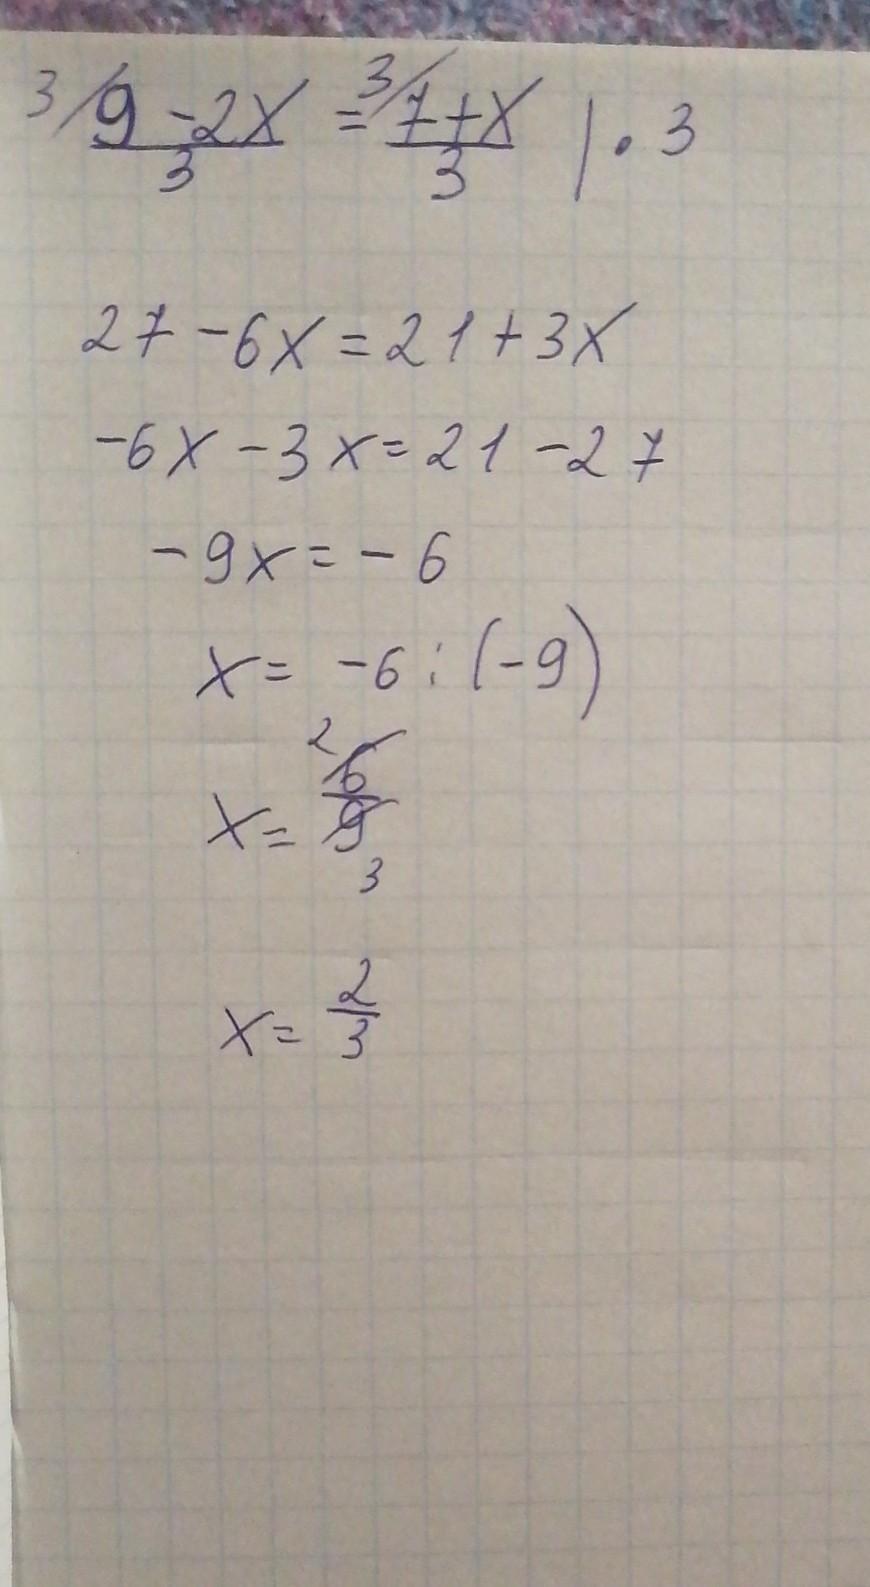 3/ 9-2x/3 = 3/ 7+x/3 | · 3
27-6x=21+3x
-6x-3x=21-27
-9x=-6
x= -6:(-9)
x= 2 6/9 3
x= 2/3